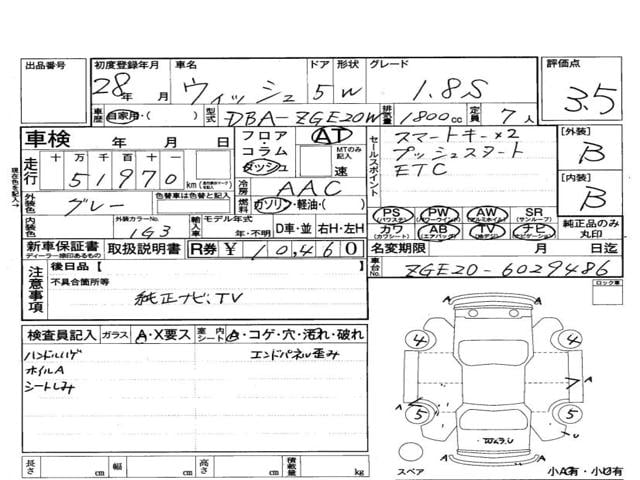 出品番号 初度登録年月 車名 ドア 形状 グレード 評価点
28年 月 ウィッシュ 5 W 1.8S 3.5
車歴 自家用・( ) 型式 DBA-ZGE20W 排気量 1800cc 定員 7人
車検 年 月 日 フロア AT セールスポイント スマートキー×2 [外装]
コラム MTのみ記入 プッシュスタート B
走行 十 万 千 百 十 一 ダッシュ 速 ETC
51970 km 冷房 AAC [内装]
外装色 グレー 色替車は色替と記入 燃料 ガソリン・軽油・( ) B
PS PW AW SR
内装色 外装カラーNo. 1G3 輸入車 モデル年式 年・不明 D車・並 右H・左H カワ AB TV ナビ 純正品のみ丸印
新車保証書 取扱説明書 R券 ¥10,460 名変期限 月 日迄
ディーラー捺印あるもの
車台No. ZGE20-6029486
注意事項 後日品 [ ]
不具合箇所等
純正ナビ、TV
ロック車
検査員記入 ガラス A・X要ス 室内シート B・コゲ・穴・汚れ・破れ
ハンドルハゲ エンドパネル歪み
ホイルA
シートしみ
A
4 4
A A
7
A A
5 5
U
A
スペア 小A有・小B有
長さ cm 幅 cm 高さ cm 積載量 kg
現在の色を記入→